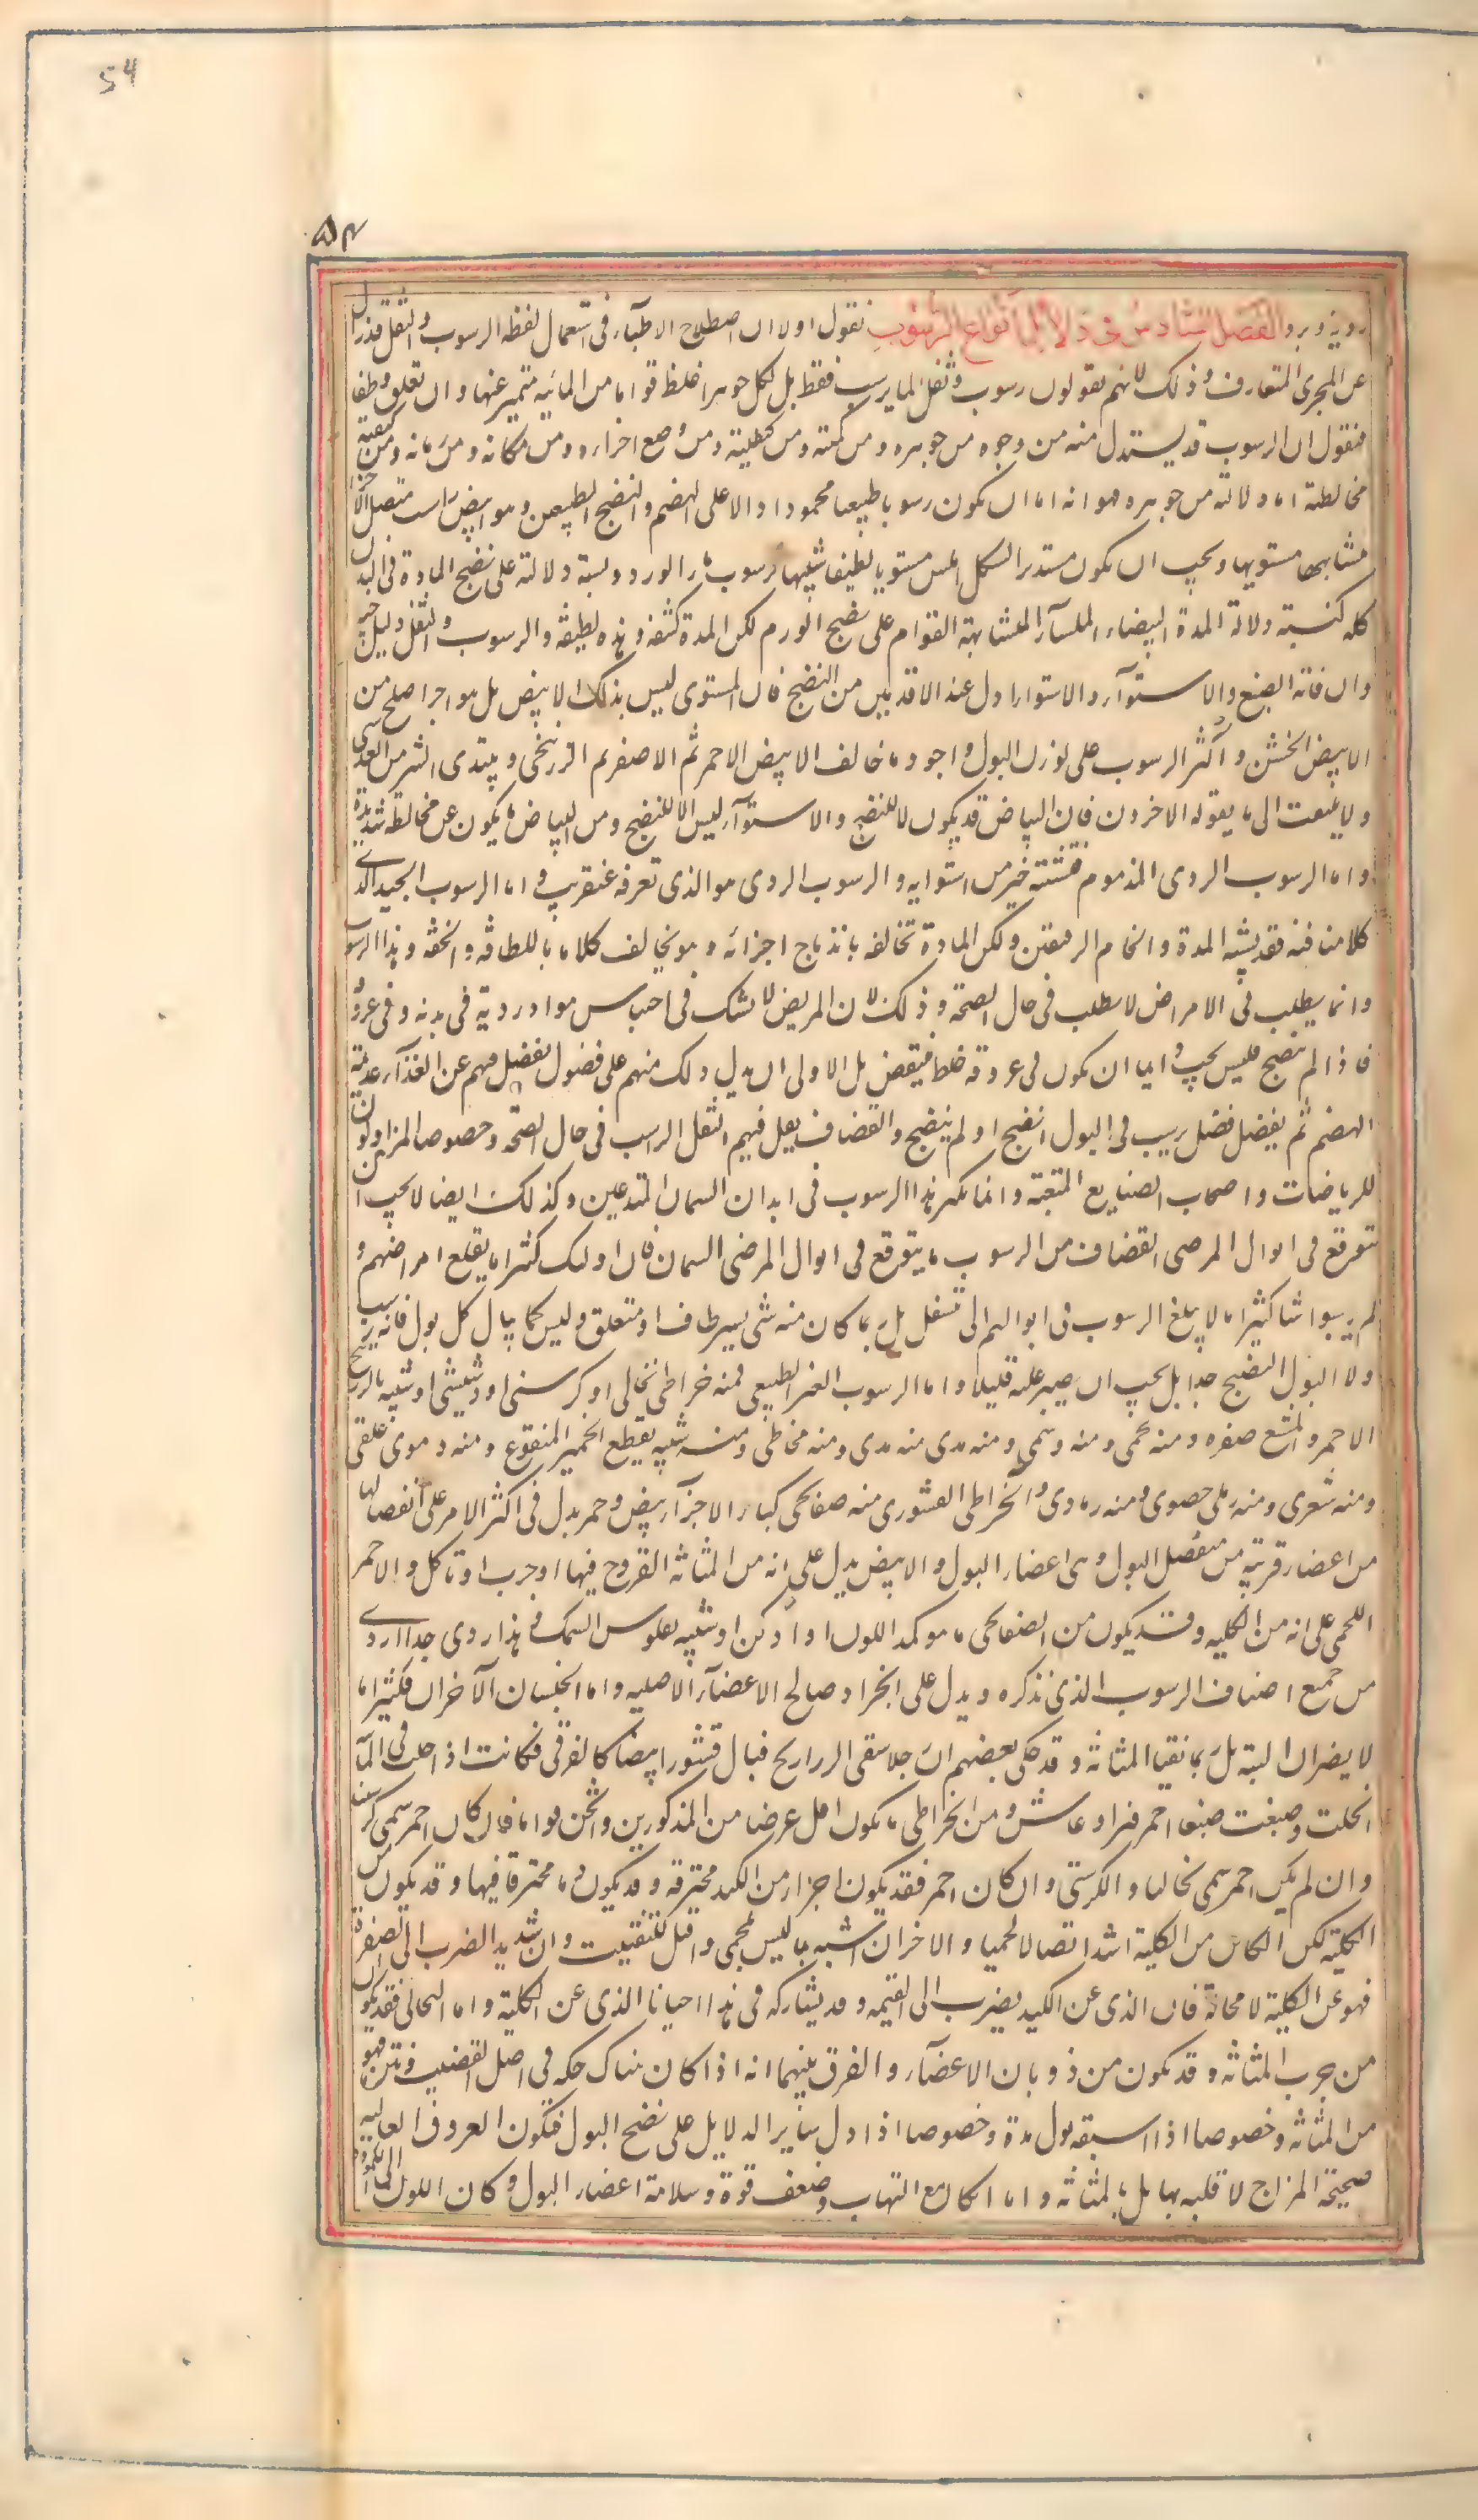 54
۵۴
ردية وبرد الفصل السادس فى دلايل انواع الرسوب نقول اولا ان اصطلاح الاطباء فى استعمال لفظه الرسوب والثفل قد زال
عن المجرى المتعارف وذلك لانهم يقولون رسوب وثفل لما يرسب فقط بل لكل جوهر اغلظ قواما من المائيه متميز عنها وان تعلق وطفا
فنقول ان الرسوب قد يستدل منه من وجوه من جوهره ومن كميته ومن كيفيته ومن وضع اجزاءه ومن مكانه ومن زمانه ومن كيفية
مخالطته اما دلالته من جوهره فهو انه اما ان يكون رسوبا طبيعيا محمودا دالا على الهضم والنضج الطبيعى وهو ابيض راسب متصل الاجزا
متشابهها مستويها ويجب ان يكون مستدير الشكل املس مستويا لطيفا شبيها برسوب ماء الورد ونسبة دلالته على نضج المادة فى البدن
كله كنسبة دلالة المدة البيضاء الملسآء المتشابهة القوام على نضج الورم لكن المدة كثيفه وهذه لطيفه والرسوب والثفل دليل جيد
وان فاته الصبغ والاستوآء والاستواء ادل عند الاقدمين من النضج فان المستوى ليس بذلك الابيض بل هو احمر اصلح من
الابيض الخشن واكثر الرسوب على لون البول واجود ما خالف الابيض الاحمر ثم الاصفر ثم الزرنيخى ويبتدى الشر من العدسى
ولا يلتفت الى ما يقوله الاخرون فان البياض قد يكون لا للنضج والاستوآء ليس الا للنضج ومن البياض ما يكون عن مخالطة شديدة
واما الرسوب الردى المذموم فتشتته خير من استوايه والرسوب الردى هو الذى تعرفه عنقريب واما الرسوب الجيد الذے
كلامنا فيه فقد يشبه المدة والخام الرقيقين ولكن المادة تخالفه باندماج اجزائه وهو يخالف كلاهما باللطافه والخفه وهذا الرسوب
وانما يطلب فى الامراض لا يطلب فى حال الصحة وذلك لان المريض لا يشك فى احتباس مواد ردية فى بدنه وفى عروقه
فاذا لم ينضج فليس يجب دايما ان يكون فى عروقه خلط فينقض بل الاولى ان يدل ذلك منهم على فضول يفضل فيهم عن الغذآء عديمة
الهضم ثم يفضل فضل يرسب فى البول انضج او لم ينضج والقضاف يقل فيهم الثفل الراسب فى حال الصحة وخصوصا المزاولون
للرياضات واصحاب الصنايع المتعبة وانما يكثر هذا الرسوب فى ابدان السمان المتدعين وكذلك ايضا لا يجب ان
تتوقع فى ابوال المرضى القضاف من الرسوب ما يتوقع فى ابوال المرضى السمان فان اولئك كثيرا ما يقلع امراضهم و
لم يرسبوا شا كثيرا ما لا يبلغ الرسوب فى ابوالهم الى تسفل بل ربما كان منه شى يسير طاف او متعلق وليس كما يبال كل بول فانه يرسب
ولا البول النضيج جدا بل يجب ان يصبر عليه قليلا واما الرسوب الغير الطبيعى فمنه خراطى نخالى او كرسنى او دشيشى او شبيه بالزرنيخ
الاحمر والمشبع صفره ومنه لحمى ومنه دسمى ومنه مدى منه مدى ومنه مخاطى ومنه شبيه بقطع الخمير المنقوع ومنه دموى علقى
ومنه شعرى ومنه رملى حصوى ومنه رمادى والخراطى القشورى منه صفايحى كبار الاجزآء بيض وحمر يدل فى اكثر الامر على انفصالها
من اعضاء قريبة من منفصل البول وهى اعضاء البول والابيض يدل على انه من المثانه القروح فيها او جرب او تاكل والاحمر
اللحمى على انه من الكليه وقد يكون من الصفايحى ما هو كمد اللون او ادكن او شبيه بفلوس السمك وهذا ردى جدا اردے
من جميع اصناف الرسوب الذى نذكره ويدل على انجراد صالح الاعضآء الاصليه واما الجنسان الآخران فكثيرا ما
لا يضران البتة بل ربما نقيا المثانه وقد حكى بعضهم ان رجلا سقى الذراريح فبال قشورا بيضا كالغرقى فكانت اذا حلت فى المآء
انحلت وصبغت صبغا احمر فبرا وعاش ومن الخراطى ما يكون اقل عرضا من المذكورين واثخن قواما فان كان احمر سمى كرسنيا
وان لم يكن احمر سمى نخاليا والكرسنى وان كان احمر فقد يكون اجزاء من الكبد محترقه وقد يكون دما محترقا فيها وقد يكون من
الكلية لكن الكاين من الكلية اشد اتصالا لحميا والاخران اشبه بما ليس بلحمى واقبل للتفتيت وان كان شديد الضرب الى الصفرة
فهو عن الكلية لا محالة فان الذى عن الكبد يضرب الى القتمه وقد يشاركه فى هذا احيانا الذى عن الكلية واما النخالى فقد يكون
من جرب المثانه وقد يكون من ذوبان الاعضآء والفرق بينهما انه اذا كان هناك حكه فى اصل القضيب ونتن فهو
من المثانه وخصوصا اذا سبقه بول مدة وخصوصا اذا دل ساير الدلايل على نضج البول فيكون العروق العاليه
صحيحة المزاج لا قلبه بها بل بالمثانه واما ان كان مع التهاب وضعف قوة وسلامة اعضاء البول وكان اللون الى الكمودة